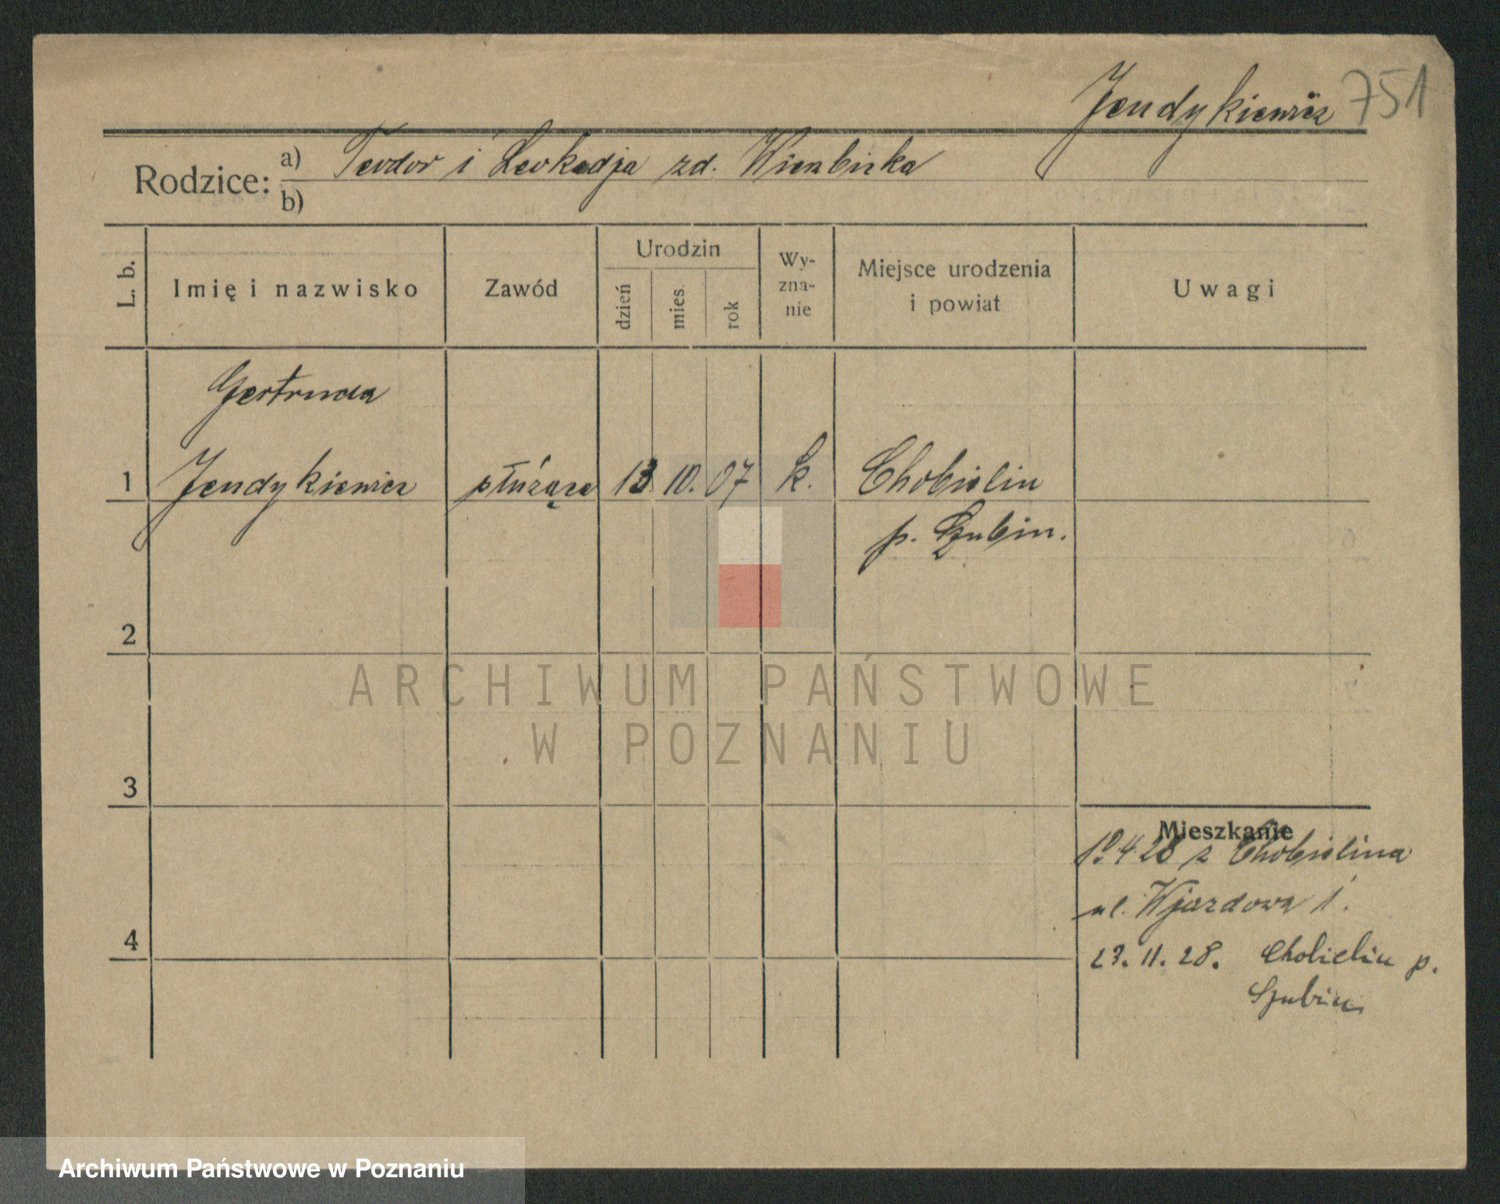 Jendykiewicz 751
Rodzice: a) Teodor i Leokadja zd. Wierzbicka
b)
L. b.
Imię i nazwisko
Zawód
Urodzin
dzień
mies.
rok
Wy-
zna-
nie
Miejsce urodzenia
i powiat
Uwagi
Gertruda
1 Jendykiewicz służąca 13 10. 07 k. Chobielin
p. Szubin.
2
3
4
Mieszkanie
19.4.28 z Chobielina
ul. Wjazdowa 1.
23.11.28. Chobielin p.
Szubin
ARCHIWUM PAŃSTWOWE
W POZNANIU
Archiwum Państwowe w Poznaniu